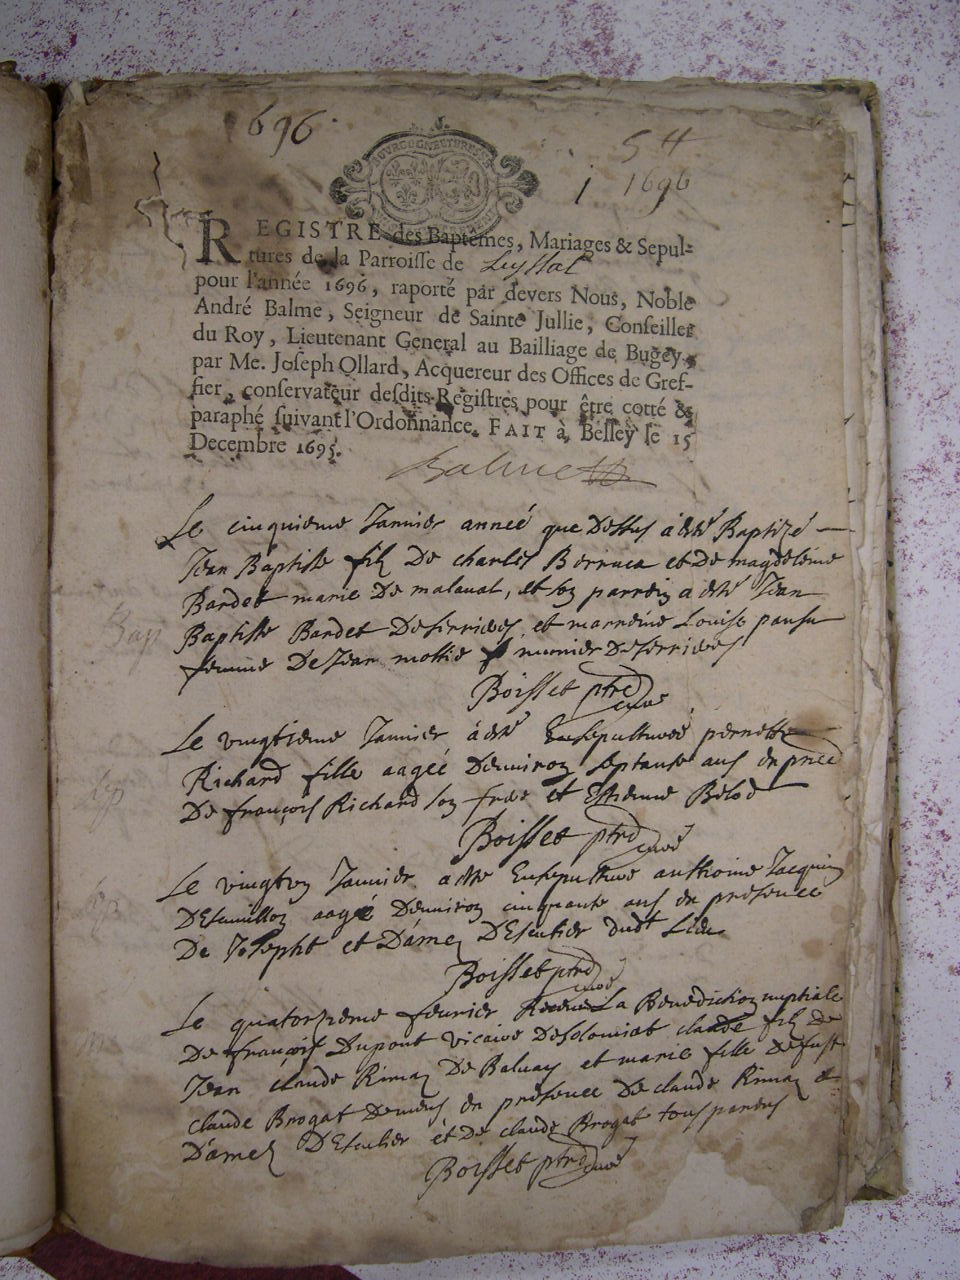 696
54
1 1696
BOURGOGNE ET BRESSE
REGISTRE des Baptêmes, Mariages & Sepul-
tures de la Parroisse de Leyssat
pour l'année 1696, raporté par devers Nous, Noble
André Balme, Seigneur de Sainte Jullie, Conseiller
du Roy, Lieutenant General au Bailliage de Bugey,
par Me. Joseph Ollard, Acquereur des Offices de Gref-
fier, conservateur desdits Registres pour être cotté &
paraphé suivant l'Ordonnance. FAIT à Belley le 15
Decembre 1695.
Balme
Le cinquieme Janvier année que Dessus à esté Baptizé
Jean Baptiste filz De charles Berruca et De magdeleine
Bardet marie De malaval, et son parrein a esté Jean
Bap
Baptiste Bardet De serrieres et marreine Louise pansu
femme De Jean mottie munier De serrieres
Boisset ptre curé
Le vingtieme Janvier à esté Ensepulturée pernette
Richard fille aagée D'environ septante ans en pnce
De françois Richard son frere et Estienne Belod
Boisset ptre curé
Le vingt Janvier a esté Ensepulturé anthoine Jacquin
aagé D'environ cinquante ans en présence
De Josepht et D'amez D'Escutier dudt Lieu
Boisset ptre curé
Le quatorzieme febvrier Receu La Benediction nuptiale
De françois Dupont vicaire De solomiat claude filz de
Jean claude Rimaz De Balvay et marie fille De fust
claude Brogat De mens en présence De claude Rimaz et
D'amez D'Escutier et De claude Brogat tous parens
Boisset ptre curé